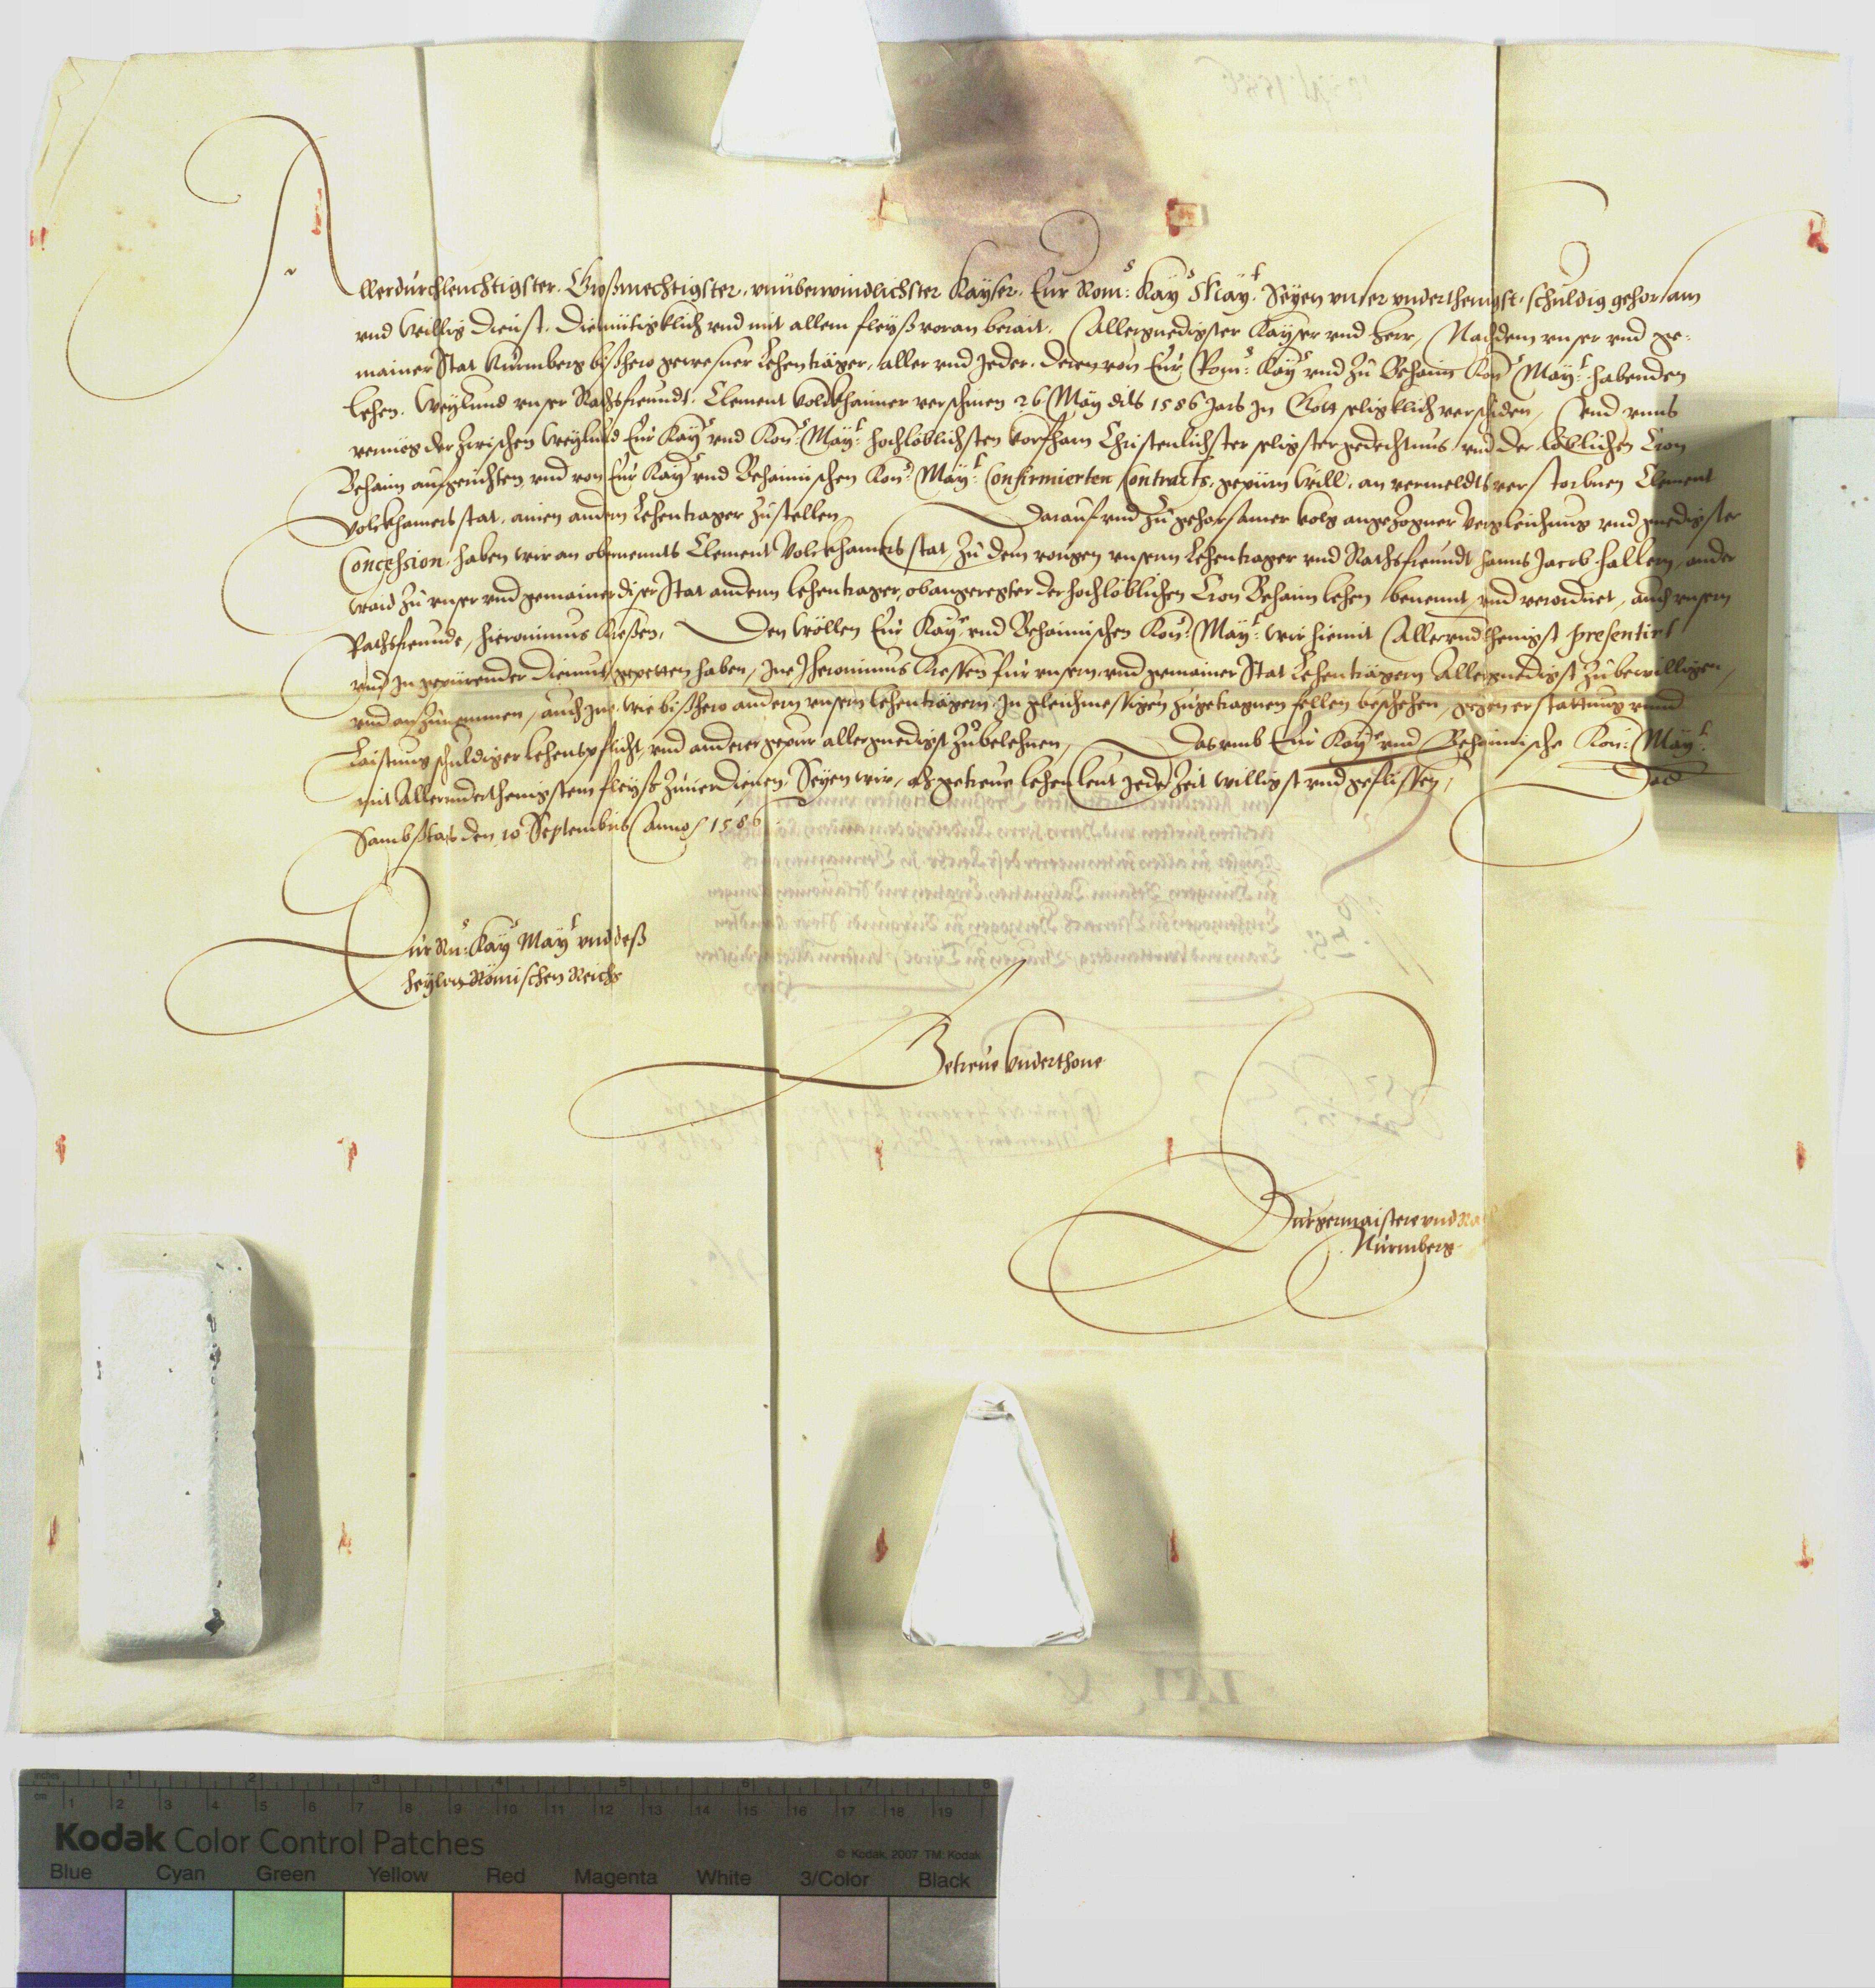 Allerdurchleuchtigster, Großmechtigster, vnüberwindlichster Kayser, Eur Röm: Kay: May:t Seyen vnser vnderthenigst, schuldig gehorsam
vnd willig dienst, diemütigklich vnd mit allem fleyß voran berait. Allergnedigster Kayser vnd Herr, Nachdem vnser vnd ge-
mainer Stat Nürmberg bißhero gewesner Lehentrager, aller vnd Jeder, deren von Eur Röm: Kay: vnd zu Behaim Kön: May:t habenden
Lehen, Weylund vnser Rathsfreundt, Clement Volckhamer verschinen 26 May dits 1586 Jars In Gott seligklich verschiden, vnd vnns
vermög der zwischen Weylund Eur Kay: vnd Kön: May:t hochlöblichsten vorfharn Christenlichster seligster gedechtnus, vnd der löblichen Cron
Behaim aufgerichten vnd von Eur Kay: vnd Behaimischen Kön: May:t Confirmierten Contracts, gepürn will, an vermeldts verstorbnen Clement
Volckhamers stat, ainen andern Lehentrager zustellen, Darauf vnd zu gehorsamer volg angezogner Vergleichung vnd gnedigster
Concession, haben wir an obernennts Clement Volckhamers stat, zu dem vorigen vnserm Lehentrager vnd Rathsfreundt Hanns Jacob Hallern, ander
waid zu vnser vnd gemainer diser Stat andern lehentrager, obangeregter der hochlöblichen Cron Behaim lehen benennt vnd verordnet, auch vnsern
Rathsfreunde, Hieronimus Kreßen, Den wöllen Eur Kay: vnd Behaimischen Kön: May:t wir hiemit Allervndthenigst presentirt
vnd In gepürender diemut gepetten haben, Ine Hieronimus Kressen für vnsern vnd gemainer Stat Lehentragern Allergnedigst zubewilligen,
vnd anzunemmen, auch Ine, wie bißhero andern vnsern lehentragern In gleichmessigen zugetragnen fellen beschehen, gegen erstattung vnnd
Laistung schuldiger lehenspflicht, vnd anderer gepur allergnedigst zubelehnen, Das vmb Eur Kay: vnd Behaimische Kön: May:t
mit Allervnderthenigstem fleyß zuuerdienen, Seyen wir, als getreue lehenleut Jeder Zeit willigst vnd geflissen,
Sambßtags den 10 Septembris Anno 1586
Eur Rö: Kay: May:t vnd deß
heylign Römischen Reichs
Getreue Vnderthone
Burgermaister vnd Ra
Nürmberg
Kodak Color Control Patches
© Kodak, 2007 TM: Kodak
Blue Cyan Green Yellow Red Magenta White 3/Color Black